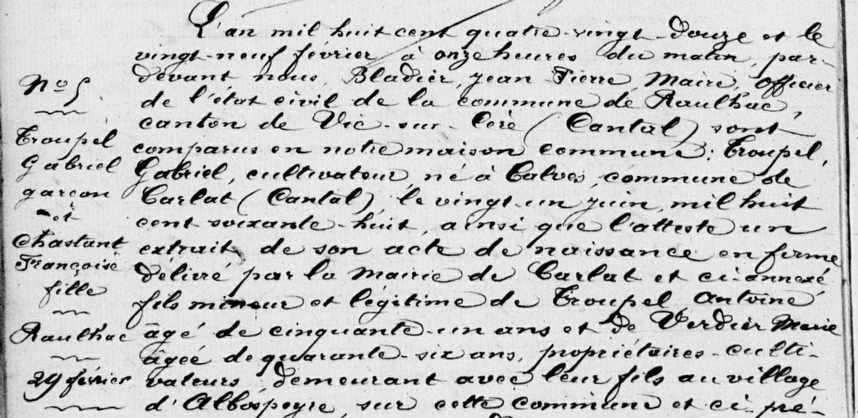 L'an mil huit cent quatre-vingt douze et le
vingt-neuf février à onze heures du matin, par-
devant nous, Bladier, Jean Pierre, Maire, Officier
de l'état civil de la commune de Raulhac,
canton de Vic-sur-Cère (Cantal) sont
comparus en notre maison commune: Troupel,
Gabriel, cultivateur né à Calves, commune de
Carlat (Cantal) le vingt un juin, mil huit
cent soixante-huit, ainsi que l'atteste un
extrait de son acte de naissance en forme
délivré par la Mairie de Carlat et ci-annexé
fils mineur et légitime de Troupel Antoine
âgé de cinquante-un ans et de Verdier Marie
âgée de quarante-six ans, propriétaires-culti-
vateurs, demeurant avec leur fils au village
d'Albospeyre, sur cette commune et ci pré-
No 5
Troupel
Gabriel
garçon
et
Chastant
Françoise
fille
Raulhac
29 février